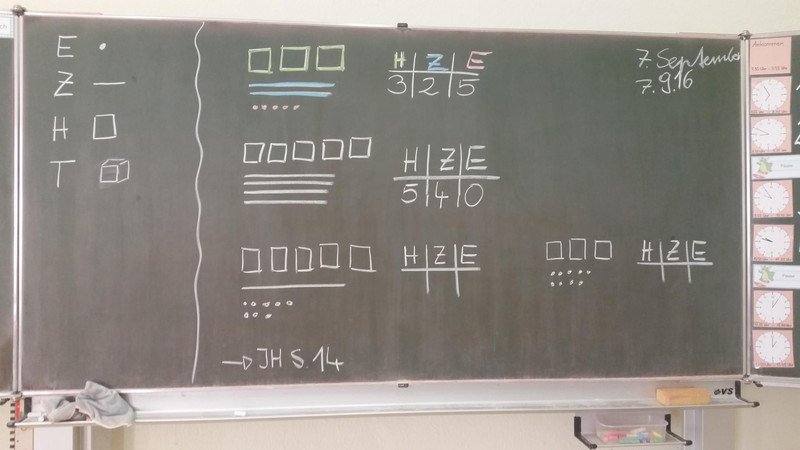 E
Z
H
T
H Z E
3 2 5
7. September
7.9.16
H Z E
5 4 0
H Z E
H Z E
→ JH S. 14
VS